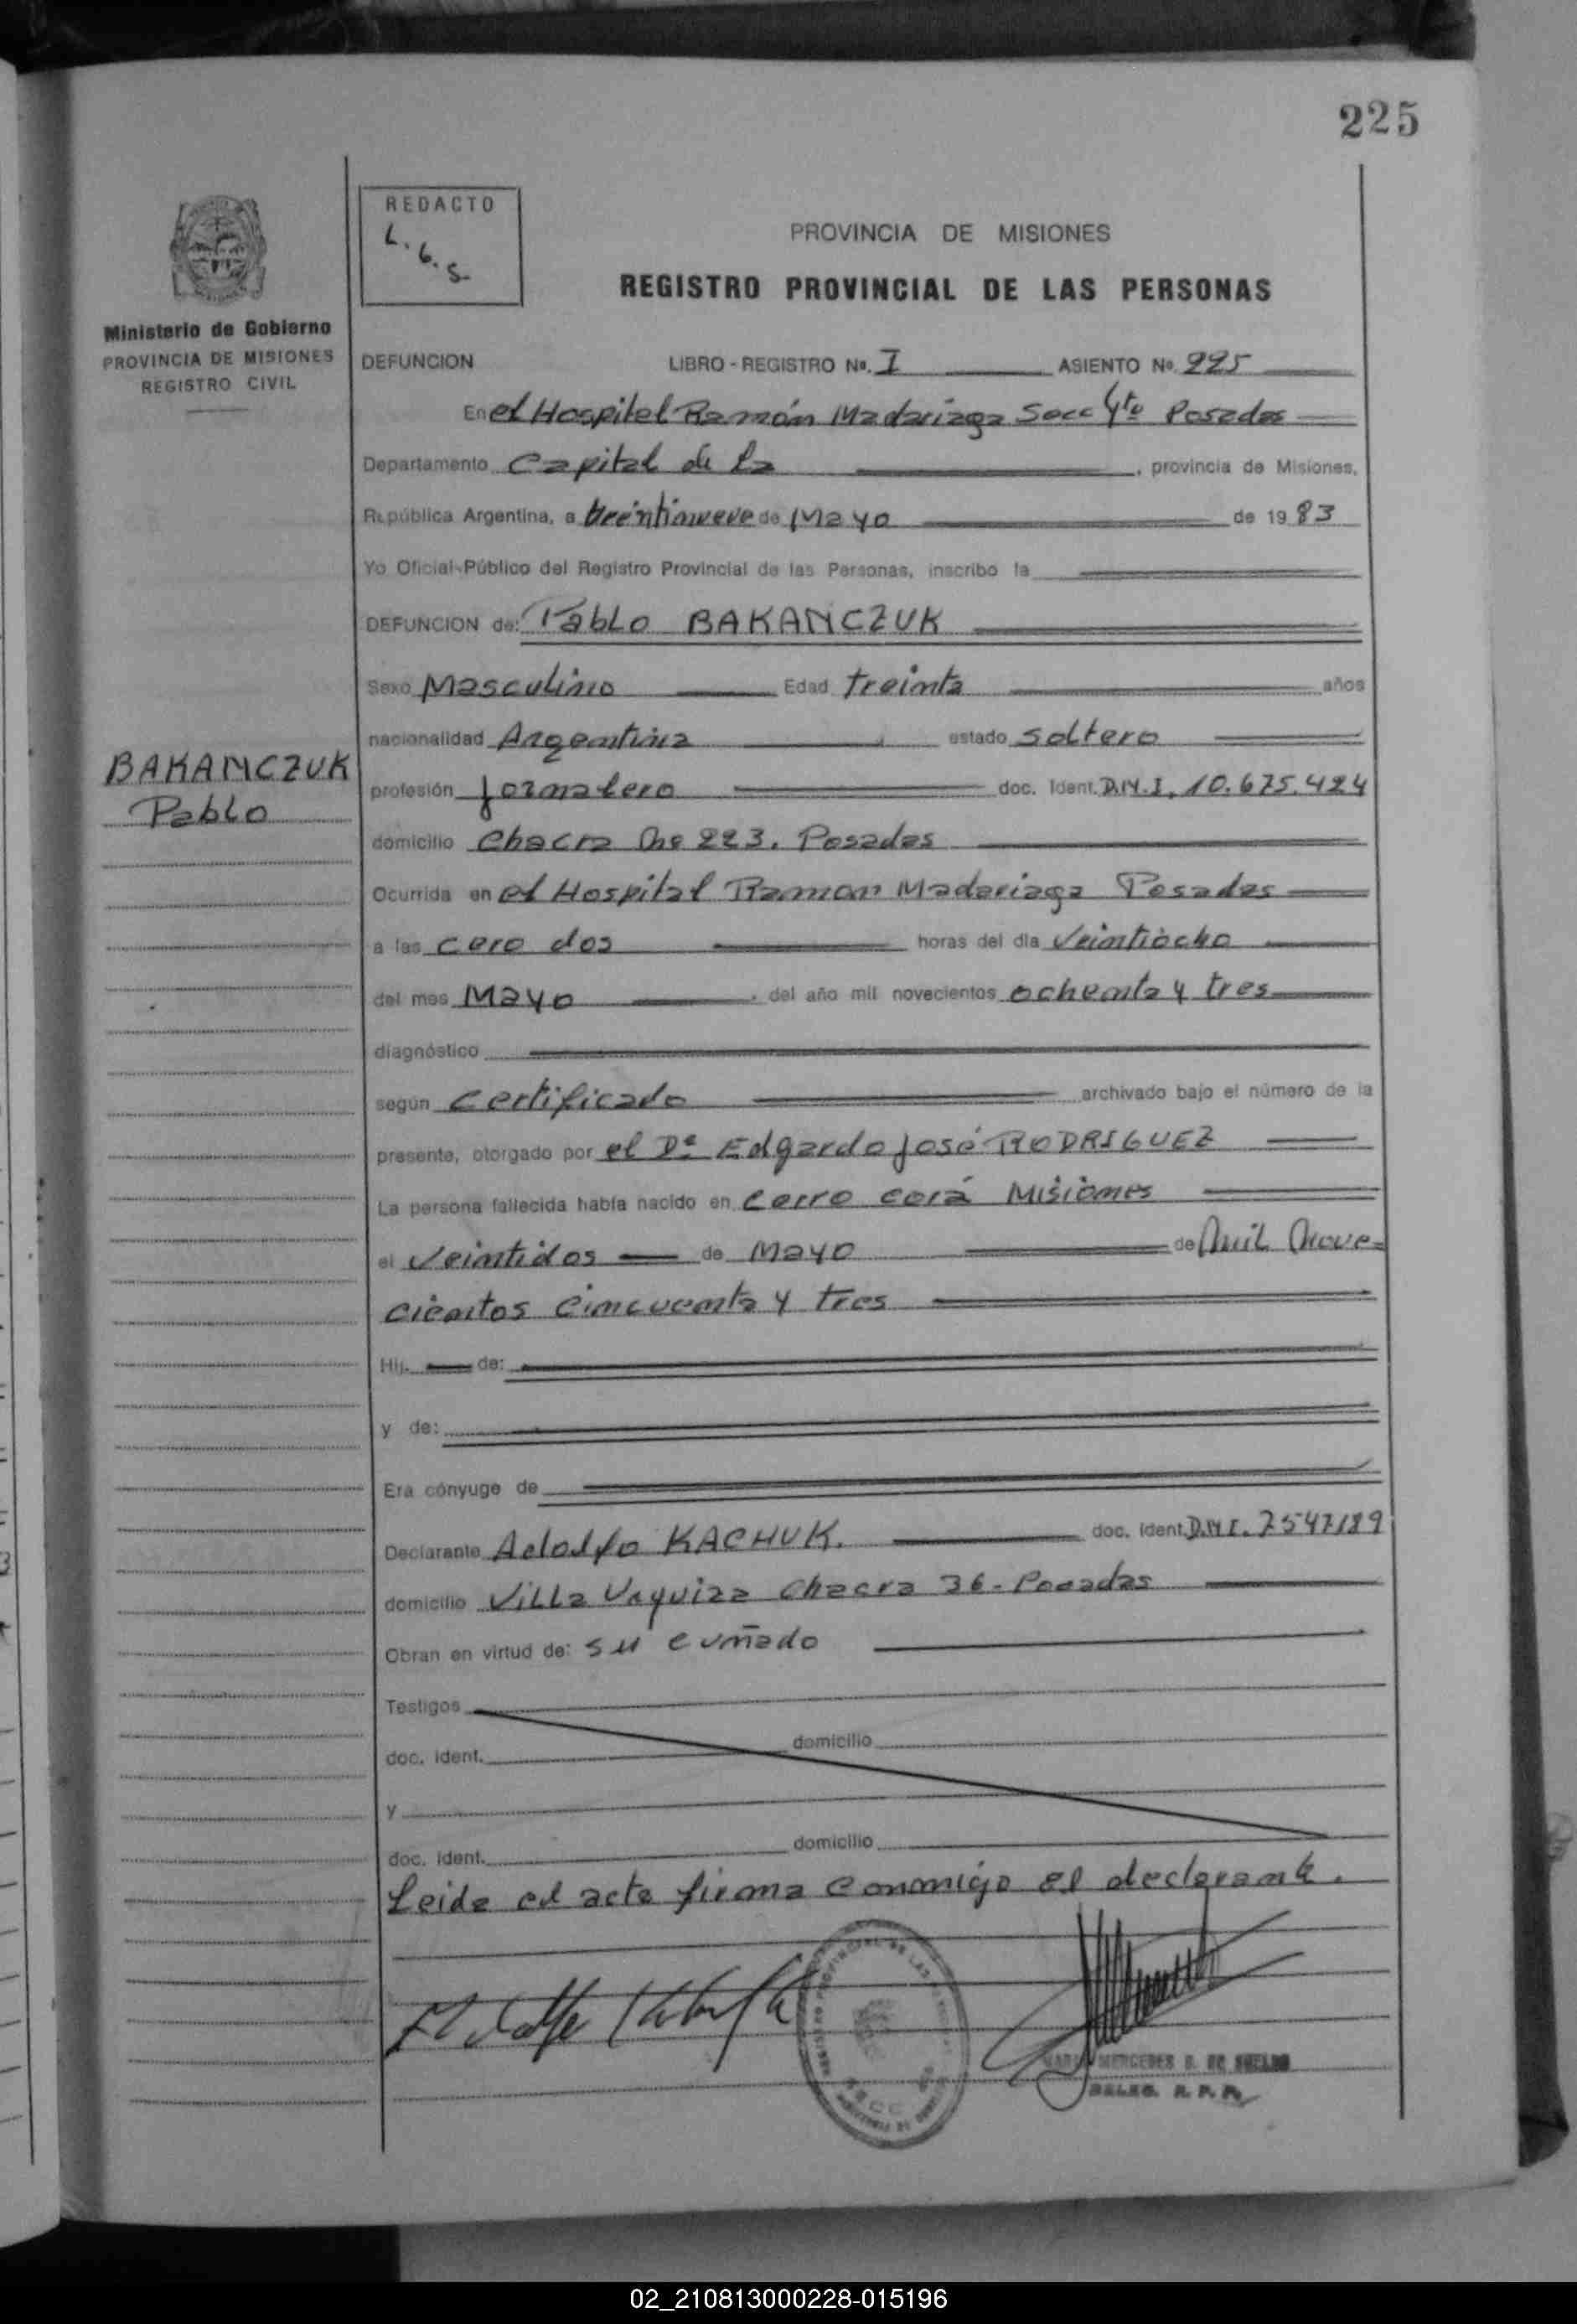 225
REDACTO
L. G. S.
PROVINCIA DE MISIONES
REGISTRO PROVINCIAL DE LAS PERSONAS
Ministerio de Gobierno
PROVINCIA DE MISIONES
REGISTRO CIVIL
DEFUNCION LIBRO - REGISTRO No. I ASIENTO No. 225
En el Hospital Ramón Madariaga Secc 4ta Posadas
Departamento Capital de la , provincia de Misiones,
República Argentina, a treintinueve de Mayo de 1983
Yo Oficial Público del Registro Provincial de las Personas, inscribo la
DEFUNCION de: Pablo BAKANCZUK
Sexo Masculino Edad treinta años
nacionalidad Argentina estado soltero
BAKANCZUK
Pablo
profesión jornalero doc. Ident. D.N.I. 10.675.424
domicilio Chacra No 223. Posadas
Ocurrida en el Hospital Ramon Madariaga Posadas
a las cero dos horas del día Veintiocho
del mes Mayo . del año mil novecientos ochenta y tres
diagnóstico
según Certificado archivado bajo el número de la
presente, otorgado por el Dr Edgardo José RODRIGUEZ
La persona fallecida había nacido en Cerro corá Misiones
el Veintidos de Mayo de Mil Nove-
cientos Cincuenta y tres
Hij. de:
y de:
Era cónyuge de
Declarante Adolfo KACHUK. doc. Ident. D.N.I. 7547189
domicilio Villa Urquiza Chacra 36 - Posadas
Obran en virtud de: su cuñado
Testigos
doc. Ident. domicilio
y
doc. Ident. domicilio
Leida el acta firma conmigo el declarante.
MERCEDES
DELEG. R. P. P.
02_210813000228-015196